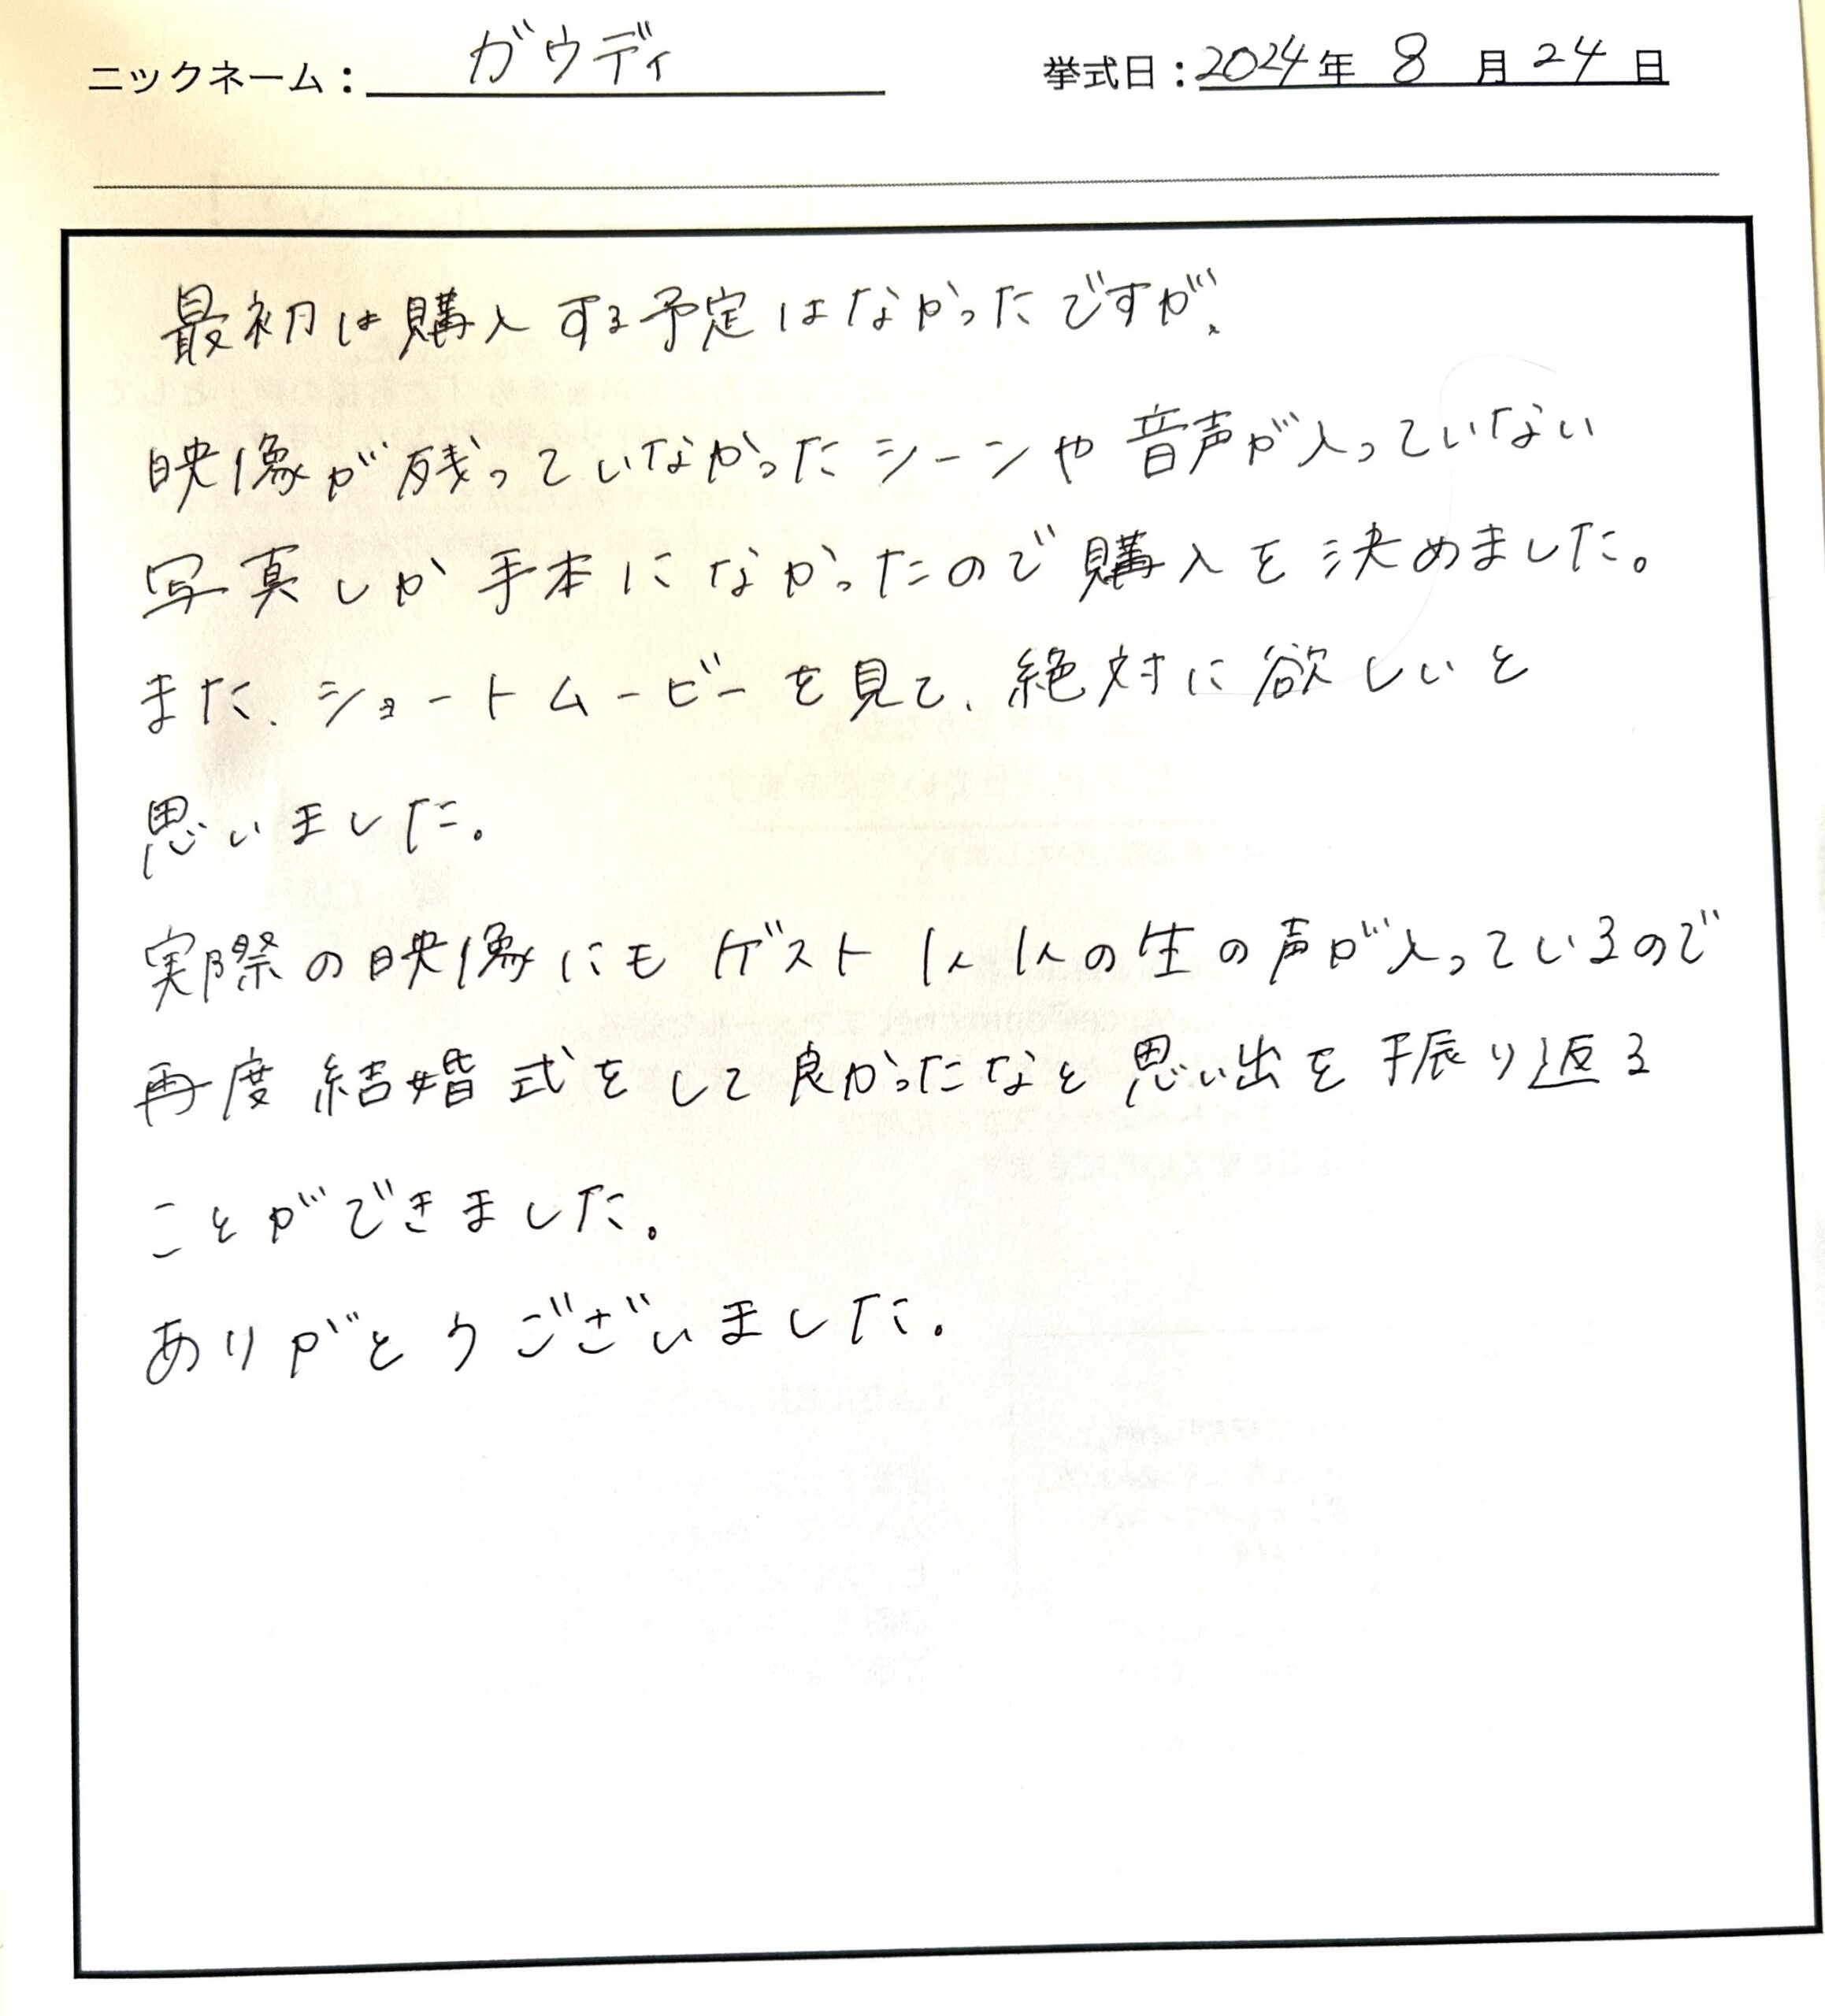 ニックネーム：ガウディ 挙式日：2024年 8月24日
最初は購入する予定はなかったですが、
映像が残っていなかったシーンや音声が入っていない
写真しか手本になかったので購入を決めました。
また、ショートムービーを見て、絶対に欲しいと
思いました。
実際の映像にもゲスト1人1人の生の声が入っているので
再度結婚式をして良かったなと思い出を振り返る
ことができました。
ありがとうございました。